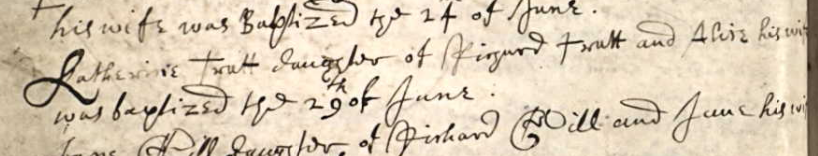 his wife was Baptized the 24 of June.
Katherine Tratt daughter of Richard Tratt and Alice his wi
was baptized the 29th of June.
Jane Will daughter of Richard Will and June his wi